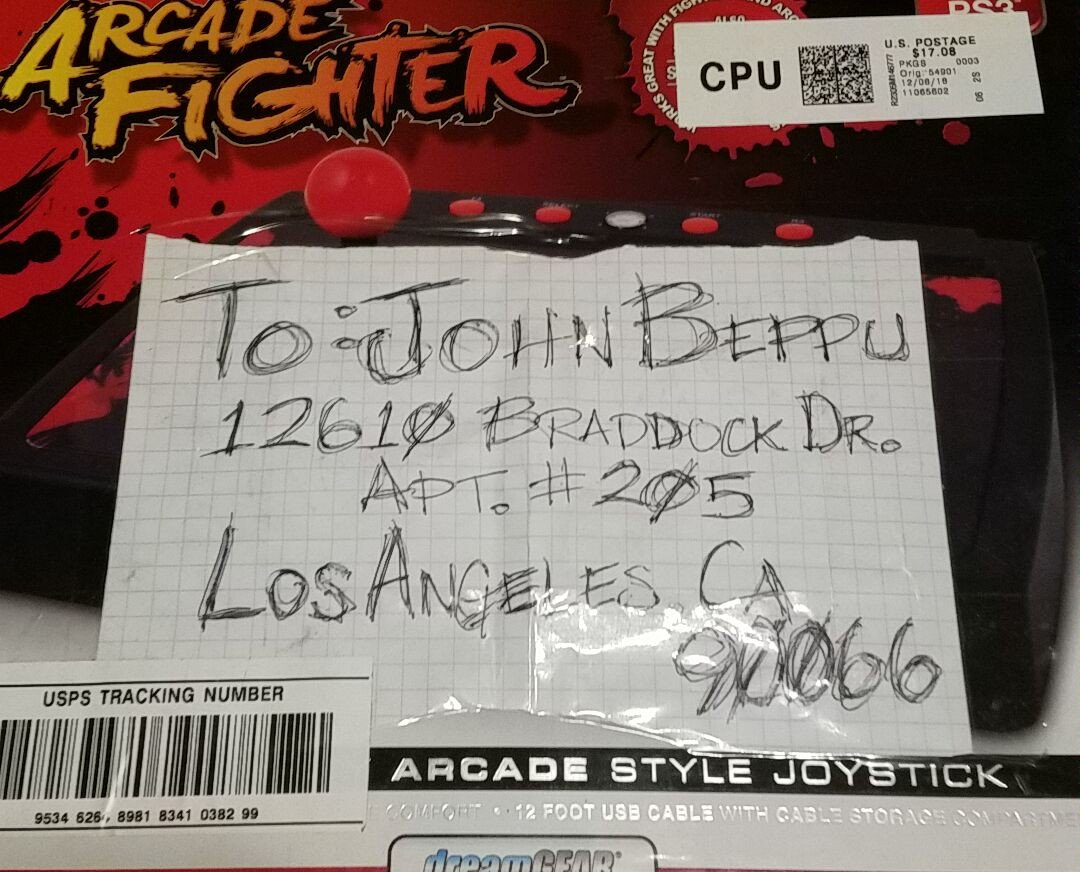 ARCADE
FIGHTER
WORKS GREAT WITH FIGHTING AND
ALSO
PS3
CPU
U.S. POSTAGE
$17.08
PKGS 0003
Orig: 54901
12/06/18
11065602
06 2S
SELECT
START
TO: JOHN BEPPU
12610 BRADDOCK DR.
APT. #205
LOS ANGELES, CA
90066
USPS TRACKING NUMBER
9534 626 8981 8341 0382 99
ARCADE STYLE JOYSTICK
COMFORT • 12 FOOT USB CABLE WITH CABLE STORAGE COMPARTME
dreamGEAR